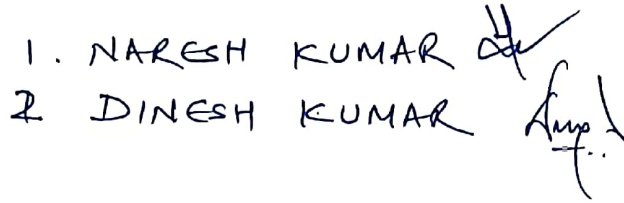 1. NARESH KUMAR
2 DINESH KUMAR